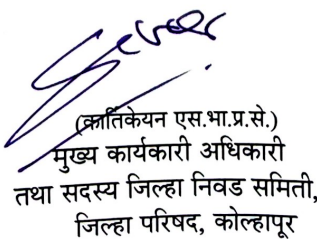 (कार्तिकेयन एस.भा.प्र.से.)
मुख्य कार्यकारी अधिकारी
तथा सदस्य जिल्हा निवड समिती,
जिल्हा परिषद, कोल्हापूर